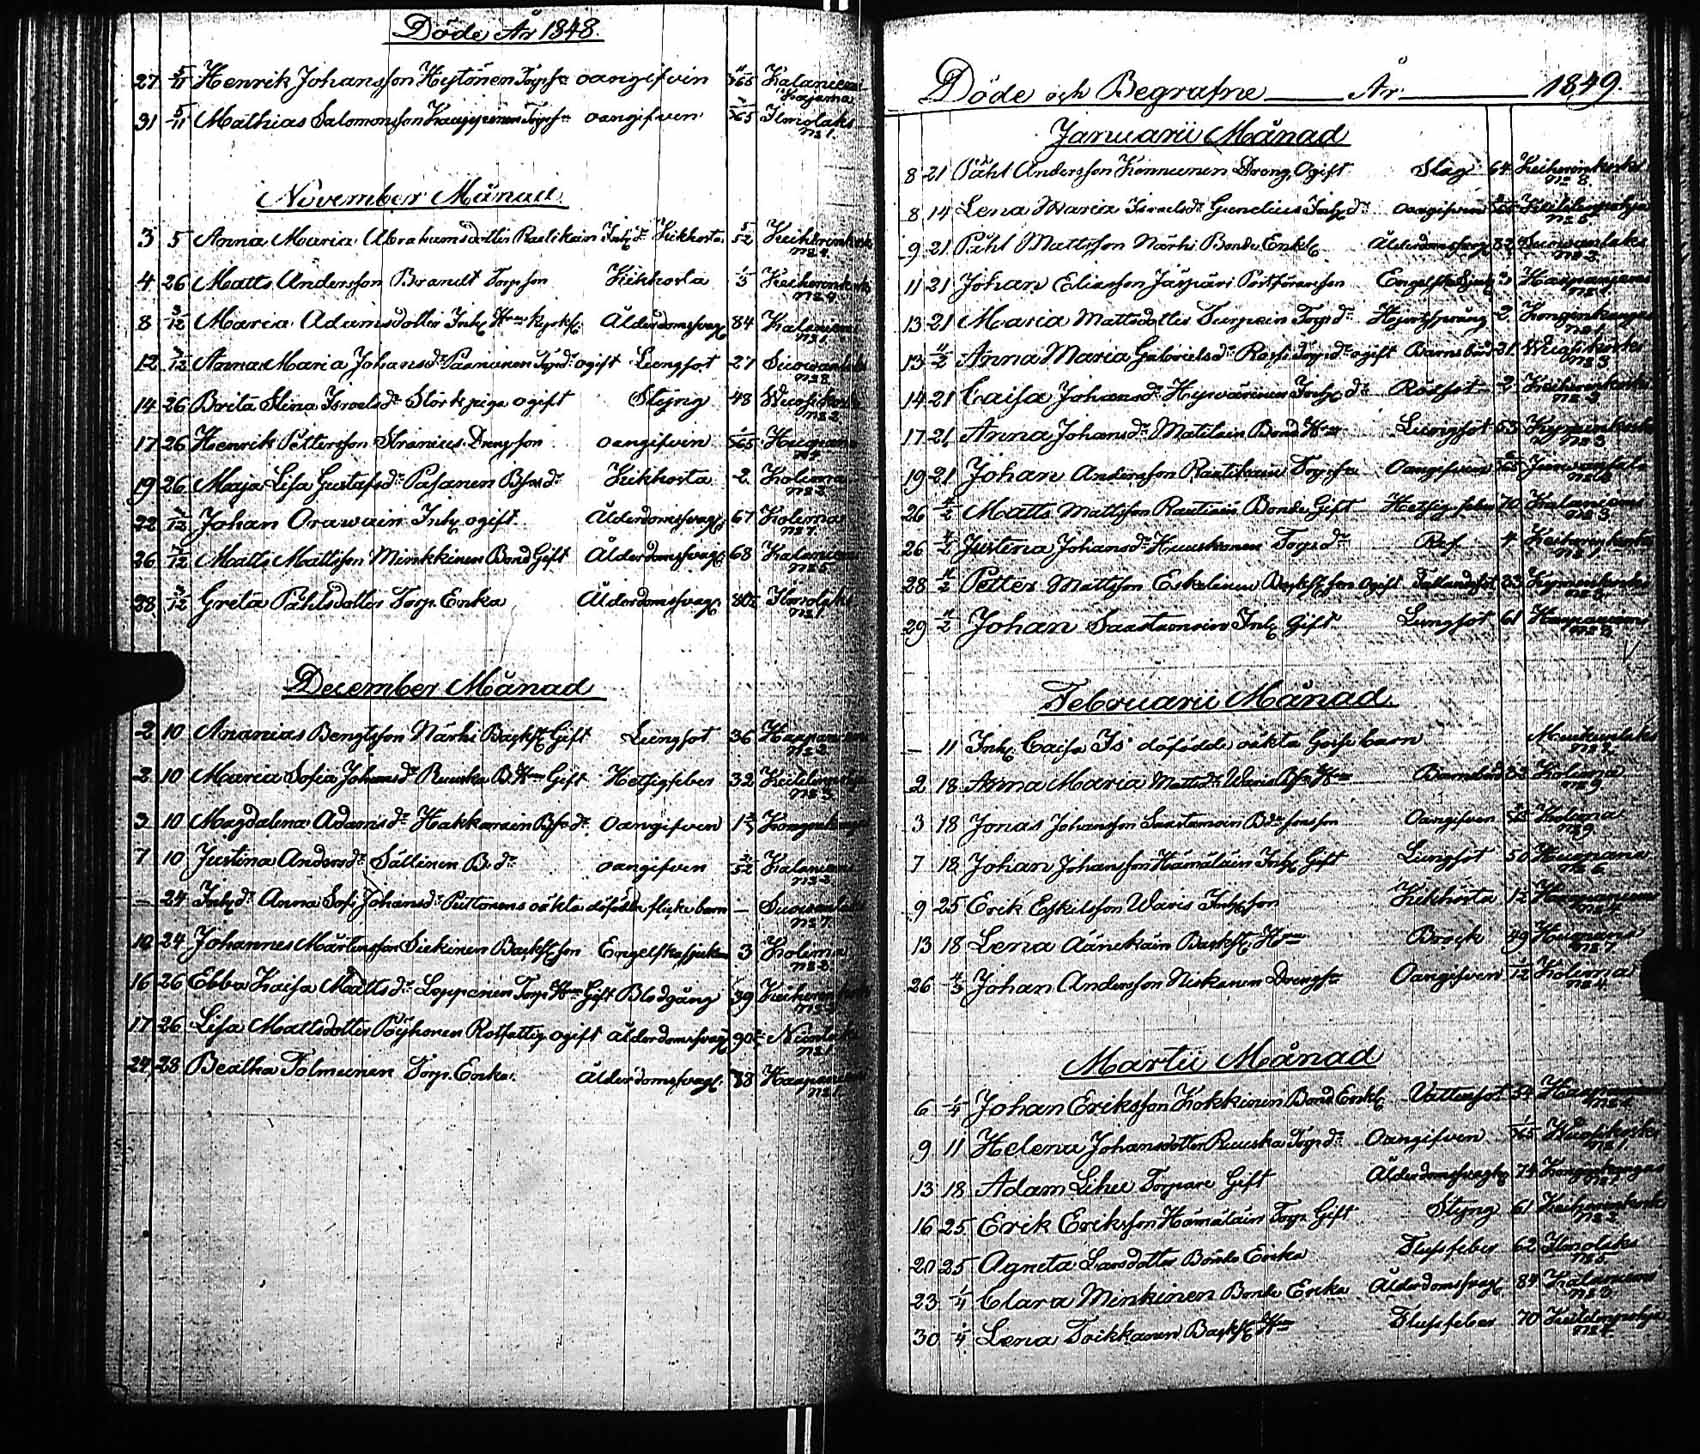 Döde År 1848.
27 5/11 Henrik Johansson Hytönen Torp.s. oangifvin 11/365 Kalaniemi
Kajama
31 5/11 Mathias Salomonsson Kauppinen Torps. oangifven 7/365 Ilmolaks
No 1.
November Månad.
3 5 Anna Maria Abrahamsdotter Rautikain Inh. dr Kikhosta 5/52 Keiherinkoski
No 4.
4 26 Matts Andersson Brandt Torpson Kikhosta Keiherinkoski
No 4.
8 3/12 Maria Adamsdotter Inh. Hru Ålderdomssvagh. 84 Kalaniemi
No 1.
12 3/12 Anna Maria Johansdr Paananen Torpdr ogift Lungsot 27 Suovanlaks
No 8.
14 26 Brita Stina Israelsdr Störk piga ogift Styng 48 Wuosikoski
No 2.
17 26 Henrik Pettersson Stranius Drengson oangifvin 1/365 Huopana
No 4.
19 26 Maja Lisa Gustafsdr Pasanen Bfrs dr Kikhosta 2 Kolima
No 3.
22 3/12 Johan Orawain Inh. ogift Ålderdomssvagh. 67 Kolima
No 7.
26 3/12 Matts Mattsson Minkkinen Bond Gift Ålderdomssvagh. 68 Kalaniemi
No 5.
28 3/12 Greta Påhlsdotter Torp. Enka Ålderdomssvagh. 80 Ilmolaks
No 1.
December Månad
2 10 Ananias Bengtsson Närhi Backst. Gift Lungsot 36 Haapaniemi
No 3.
2 10 Maria Sofia Johansdr Ruuska B. Hru Gift Hetsigfeber 32 Keildenpohja
No 3.
3 10 Magdalena Adamsdr Hakkarain Bfrs dr Oangifven Kongenkangas
7 10 Justina Andersdr Sällinen B. dr oangifven 2/52 Kalaniemi
No 3.
— 24 Inh. dr Anna Sofi Johansdr Puttonens oäkta dödfödda flicke barn — Suovanlaks
No 7.
10 24 Johannes Mårtensson Siekinen Backst. son Engelskasjukan 3 Kolima
No 8.
16 26 Ebba Kaisa Mattsdr Leppänen Torp. Hru Gift Blodgång 39 Keiherinkoski
No 3.
17 26 Lisa Mattsdotter Pöyhönen Rotfattig ogift Ålderdomssvagh. 90 Niinilaks
No 1.
24 28 Beatha Tolmunen Torp. Enka. Ålderdomssvagh. 88 Haapaniemi
No 1.
Döde och Begrafne År 1849.
Januarii Månad
8 21 Påhl Andersson Konnunen Dreng, Ogift Slag 64 Keiherinkoski
No 8.
8 14 Lena Maria Israelsdr Gunelius Inh. dr Oangifven Keildenpohja
No 5.
9 21 Påhl Mattsson Närhi Bonde Enkl. Ålderdomssvagh. 82 Suovanlaks
No 3.
11 21 Johan Eliasson Jäspäri Postförarson Engelska Sjuk. 3 Haapaniemi
13 21 Maria Mattsdotter Turpein Torp. dr Hjertsprång 2 Kongenkangas
No 1.
13 4/2 Anna Maria Gabrielsdr Rossi Torp. dr ogift Barnsbörd 21 Wuosikoski
No 3.
14 21 Caisa Johansdr Hyvärinen Inh. dr Rödsot 2 Keiherinkoski
No 3.
17 21 Anna Johansdr Matilain Bond Hru Lungsot 53 Kyminkoski
No 3.
19 21 Johan Andersson Rautikain Torp. s. Oangifven Jurvansalo
No 2.
26 4/2 Matts Mattsson Rautiain Bonde Gift Hetsig feber 70 Kalaniemi
No 3.
26 4/2 Justina Johansdr Huuskonen Torp. dr Ros 4 Keiherinkoski
No 9.
28 4/2 Petter Mattsson Eskelinen Backst. son Ogift Fallandsot 23 Kyminkoski
No 6.
29 4/2 Johan Saastamoin Inh. Gift Lungsot 61 Haapaniemi
No 3.
Februarii Månad.
— 11 Inh. Caisa Is dödfödde oäkta Gosse barn Muikunlaks
No 2.
2 18 Anna Maria Mattsdr Waris Bfr Hru Barnsbörd 33 Kolima
No 9.
3 18 Jonas Johansson Saastamoin Bdesonson Oangifven Kolima
No 9.
7 18 Johan Johansson Hämäläin Inh. Gift Lungsot 50 Huopana
No 6.
9 25 Erik Eskelsson Waris Inh. son Kikhosta 12 Haapaniemi
13 18 Lena Äänekäin Backst. Hru Brock 49 Huopana
No 7.
26 4/3 Johan Andersson Niskanen Drengs. Oangifven 1/12 Kolima
No 4.
Martii Månad
6 1/4 Johan Eriksson Kokkinen Bond Enkl. Vattusot 34 Haapaniemi
9 11 Helena Johansdotter Ruuska Torp. dr Oangifven Wuosikoski
No 1.
13 18 Adam Lihu Torpare Gift Ålderdomssvagh. 74 Kongenkangas
No 1.
16 25 Erik Eriksson Hämäläin Torp. Gift Styng 61 Keiherinkoski
No 2.
20 25 Agneta Larsdotter Bonde Enka Flussfeber 62 Ilmolaks
No 3.
23 1/4 Clara Minkinen Bonde Enka Ålderdomssvagh. 84 Kalaniemi
No 3.
30 1/4 Lena Toikkanen Backst. Hru Flussfeber 70 Keildenpohja
No 4.